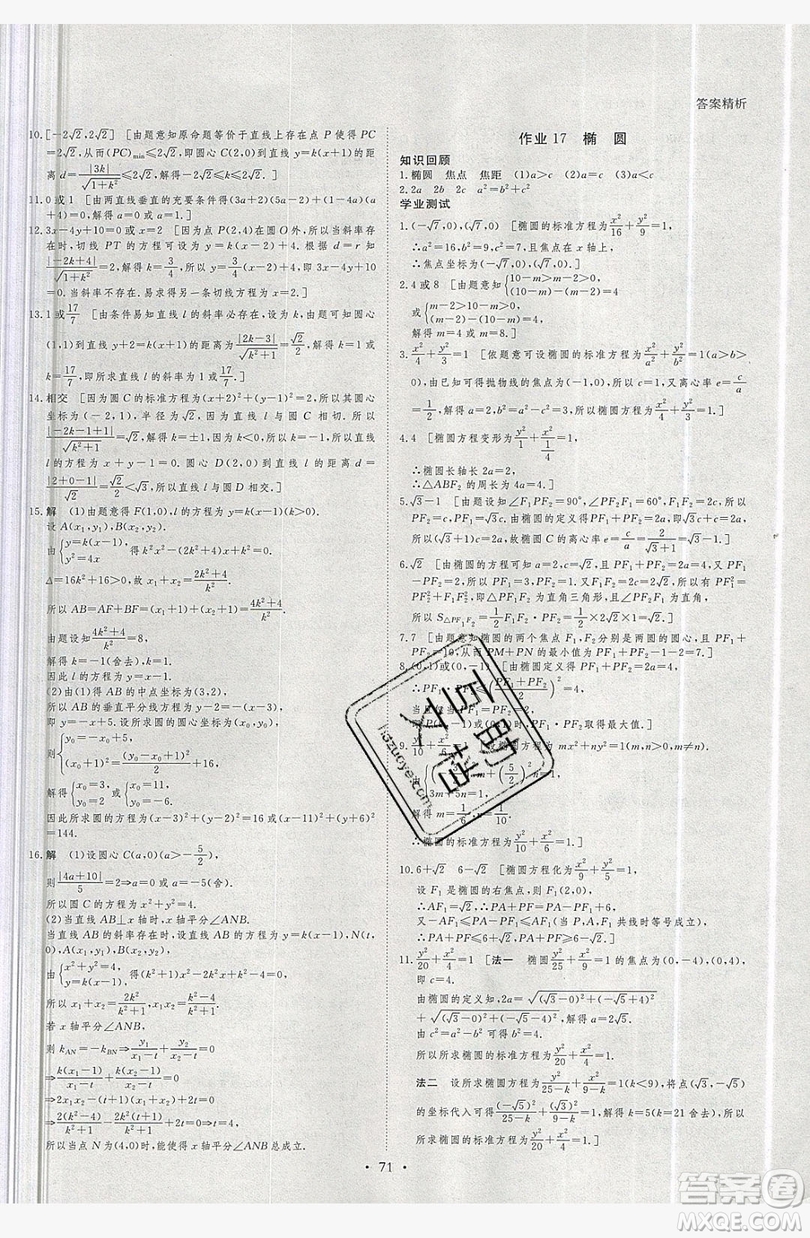 答案精析
10.[-2√2,2√2] [由题意知原命题等价于直线上存在点 P 使得 PC
=2√2,从而(PC)min≤2√2,即圆心 C(2,0)到直线 y=k(x+1)的距
离 d=|3k|/√(1+k²)≤2√2,解得-2√2≤k≤2√2.]
11.0或1 [由两直线垂直的充要条件得(3a+2)(5a-2)+(1-4a)(a+4)
=0,解得a=0或a=1.]
12.3x-4y+10=0 [因为点 P(2,4)在圆 O外,所以当斜率存
在时,切线 PT 的方程为 y=k(x-2)+4.根据 d=r 知
|-2k+4|/√(1+k²)=2,解得k=3/4,所以y=3/4(x-2)+4,即 3x-4y+10
=0.当斜率不存在时,易求得另一条切线方程为x=2.]
13.1或17/7 [由条件易知直线l的斜率必存在,设为k.
圆心(1,0)到直线 y+2=k(x+1)的距离为|2k-2|/√(k²+1)=√2/2,
解得k=1或k=17/7,即直线l的斜率为1或17/7.]
14.相交 [因为圆 C 的标准方程为(x+2)²+(y-1)²=2,所以其圆心
坐标为(-2,1),半径为√2,因为直线 l 与圆 C 相切.所以
|-2k-1+1|/√(k²+1)=√2,解得k=±1,因为k<0,所以k=-1,所以直线
l 的方程为x+y-1=0.圆心 D(2,0)到直线 l 的距离 d=
|2+0-1|/√2=√2/2<√3,所以直线l与圆D相交.]
15.解 (1)由题意得 F(1,0),l的方程为y=k(x-1)(k>0).
设A(x₁,y₁),B(x₂,y₂).
由{y=k(x-1), y²=4x 得k²x²-(2k²+4)x+k²=0.
Δ=16k²+16>0,故x₁+x₂=(2k²+4)/k².
所以AB=AF+BF=(x₁+1)+(x₂+1)=(4k²+4)/k².
由题设知(4k²+4)/k²=8,
解得k=-1(舍去),k=1.
因此l的方程为y=x-1.
(2)由(1)得 AB 的中点坐标为(3,2),
所以AB的垂直平分线方程为y-2=-(x-3),
即y=-x+5.设所求圆的圆心坐标为(x₀,y₀),
则{y₀=-x₀+5, (x₀+1)²=(y₀-x₀+1)²/2+16.
解得{x₀=3, y₀=2 或{x₀=11, y₀=-6.
因此所求圆的方程为(x-3)²+(y-2)²=16或(x-11)²+(y+6)²
=144.
16.解 (1)设圆心 C(a,0)(a>-5/2),
则|4a+10|/5=2⇒a=0或a=-5(舍去).
所以圆C的方程为x²+y²=4.
(2)当直线AB⊥x轴时,x轴平分∠ANB.
当直线AB的斜率存在时,设直线AB的方程为y=k(x-1),N(t,
0),A(x₁,y₁),B(x₂,y₂),
由{x²+y²=4, y=k(x-1) 得(k²+1)x²-2k²x+k²-4=0,
所以x₁+x₂=2k²/(k²+1),x₁x₂=(k²-4)/(k²+1).
若x轴平分∠ANB,
则 kAN=-kBN⇒y₁/(x₁-t)+y₂/(x₂-t)=0
⇒k(x₁-1)/(x₁-t)+k(x₂-1)/(x₂-t)=0
⇒2x₁x₂-(t+1)(x₁+x₂)+2t=0
⇒2(k²-4)/(k²+1)-2k²(t+1)/(k²+1)+2t=0⇒t=4,
所以当点N为(4,0)时,能使得x轴平分∠ANB总成立.
作业17 椭 圆
知识回顾
1.椭圆 焦点 焦距 (1)a>c (2)a=c (3)a<c
2.2a 2b 2c a²=b²+c²
学业测试
1.(-√7,0),(√7,0) [椭圆的标准方程为x²/16+y²/9=1,
∴c²=a²-b²=7,且焦点在 x 轴上,
∴焦点坐标为(-√7,0),(√7,0).]
2.4或8 [由题意知{10-m>m-2>0, (10-m)-(m-2)=4
或{m-2>10-m>0, (m-2)-(10-m)=4,
解得m=4或m=8.]
3.x²/4+y²/3=1 [依题意可设椭圆的标准方程为x²/a²+y²/b²=1(a>b>
0),由已知可得抛物线的焦点为(-1,0),所以c=1,又离心率e=c/a
=1/2,解得a=2,b²=a²-c²=3,所以椭圆方程为x²/4+y²/3=1.]
4.4 [椭圆方程变形为y²+x²/(1/4)=1,
∴椭圆长轴长2a=2,
∴△ABF₂的周长为4a=4.]
5.√3-1 [由题设知∠F₁PF₂=90°,∠PF₂F₁=60°,F₁F₂=2c,所以
PF₂=c,PF₁=√3c.由椭圆的定义得PF₁+PF₂=2a,即√3c+c=
2a,所以(√3+1)c=2a,故椭圆C的离心率e=c/a=2/(√3+1)=√3-1.]
6.√2 [由椭圆的方程可知a=2,c=√2,且PF₁+PF₂=2a=4,又PF₁
-PF₂=2,所以PF₁=3,PF₂=1.又F₁F₂=2c=2√2,所以有PF₁²=
PF₂²+F₁F₂²,即△PF₁F₂为直角三角形,且∠PF₂F₁为直角,
所以S△PF₁F₂=1/2F₁F₂·PF₂=1/2×2√2×1=√2.]
7.7 [由题意知椭圆的两个焦点F₁,F₂分别是两圆的圆心,且PF₁+PF₂
=10,从而PM+PN的最小值为PF₁+PF₂-1-2=7.]
8.(0,1)或(0,-1) [∵PF₁+PF₂=2a=4,
∴PF₁·PF₂≤((PF₁+PF₂)/2)²=4,
当且仅当PF₁=PF₂=2时,PF₁·PF₂取得最大值.]
9.y²/10+x²/6=1 [设椭圆方程为mx²+ny²=1(m,n>0,m≠n).
由{(-3/2)²m+(5/2)²n=1, 3m+5n=1,
解得m=1/6,n=1/10.
∴椭圆的标准方程为y²/10+x²/6=1.]
10.6+√2 6-√2 [椭圆方程化为x²/9+y²/5=1,
设F₁是椭圆的右焦点,则F₁(2,0),
∴AF₁=√2,∴PA+PF=PA-PF₁+6,
又-AF₁≤PA-PF₁≤AF₁(当P,A,F₁共线时等号成立),
∴PA+PF≤6+√2,PA+PF≥6-√2.]
11.y²/20+x²/4=1 [法一 椭圆y²/25+x²/9=1的焦点为(0,-4),(0,4),
即c=4.
由椭圆的定义知,2a=√((√3-0)²+(-√5+4)²)
+√((√3-0)²+(-√5-4)²),解得a=2√5.
由c²=a²-b²可得b²=4.
所以所求椭圆的标准方程为y²/20+x²/4=1.
法二 设所求椭圆方程为y²/(25-k)+x²/(9-k)=1(k<9),将点(√3,-√5)
的坐标代入可得(-√5)²/(25-k)+(√3)²/(9-k)=1,解得k=5(k=21舍去),所以
所求椭圆的标准方程为y²/20+x²/4=1.]
• 71 •